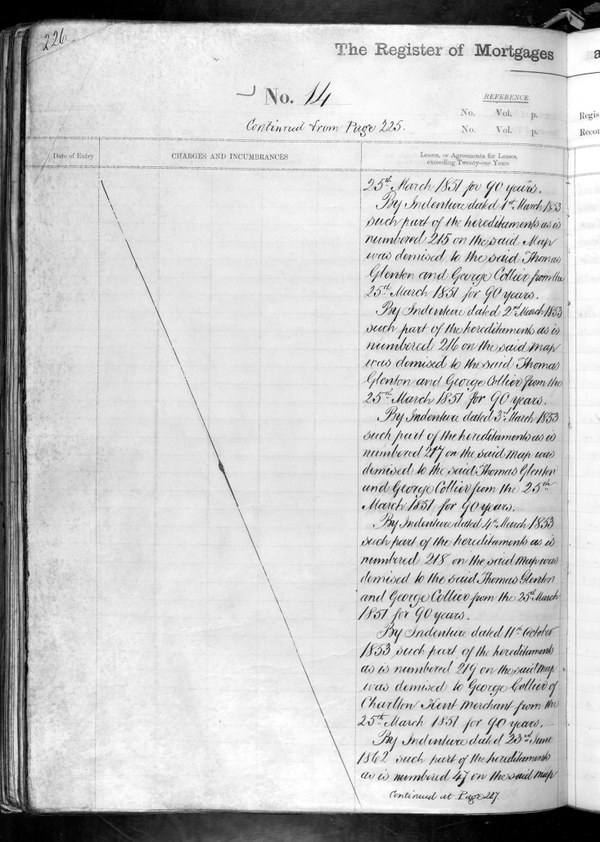 226
The Register of Mortgages
a
No. 14
REFERENCE
No. Vol. p.
No. Vol. p.
Continued from Page 225.
Regis
Recor
Date of Entry
CHARGES AND INCUMBRANCES
Leases, or Agreements for Leases,
exceeding Twenty-one Years
25th March 1851 for 90 years.
By Indenture dated 1st March 1853
such part of the hereditaments as is
numbered 215 on the said Map
was demised to the said Thomas
Glenton and George Collier from the
25th March 1851 for 90 years.
By Indenture dated 2nd March 1853
such part of the hereditaments as is
numbered 216 on the said map
was demised to the said Thomas
Glenton and George Collier from the
25th March 1851 for 90 years.
By Indenture dated 3rd March 1853
such part of the hereditaments as is
numbered 217 on the said map was
demised to the said Thomas Glenton
and George Collier from the 25th
March 1851 for 90 years.
By Indenture dated 4th March 1853
such part of the hereditaments as is
numbered 218 on the said map was
demised to the said Thomas Glenton
and George Collier from the 25th March
1851 for 90 years.
By Indenture dated 11th October
1853 such part of the hereditaments
as is numbered 219 on the said map
was demised to George Collier of
Charlton Kent merchant from the
25th March 1851 for 90 years.
By Indenture dated 23rd June
1862 such part of the hereditaments
as is numbered 47 on the said map
Continued at Page 227.